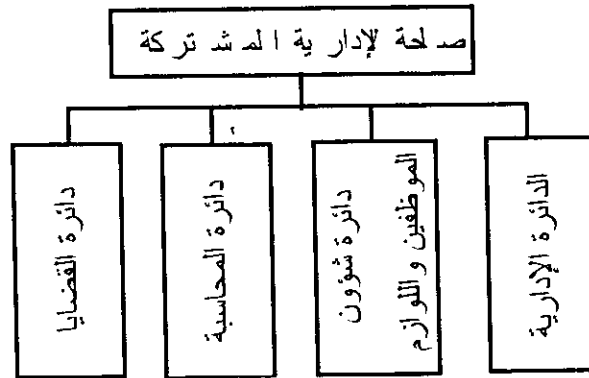 صلحة لإدارية المشتركة
الدائرة الإدارية
دائرة شؤون
الموظفين واللوازم
دائرة المحاسبة
دائرة القضايا